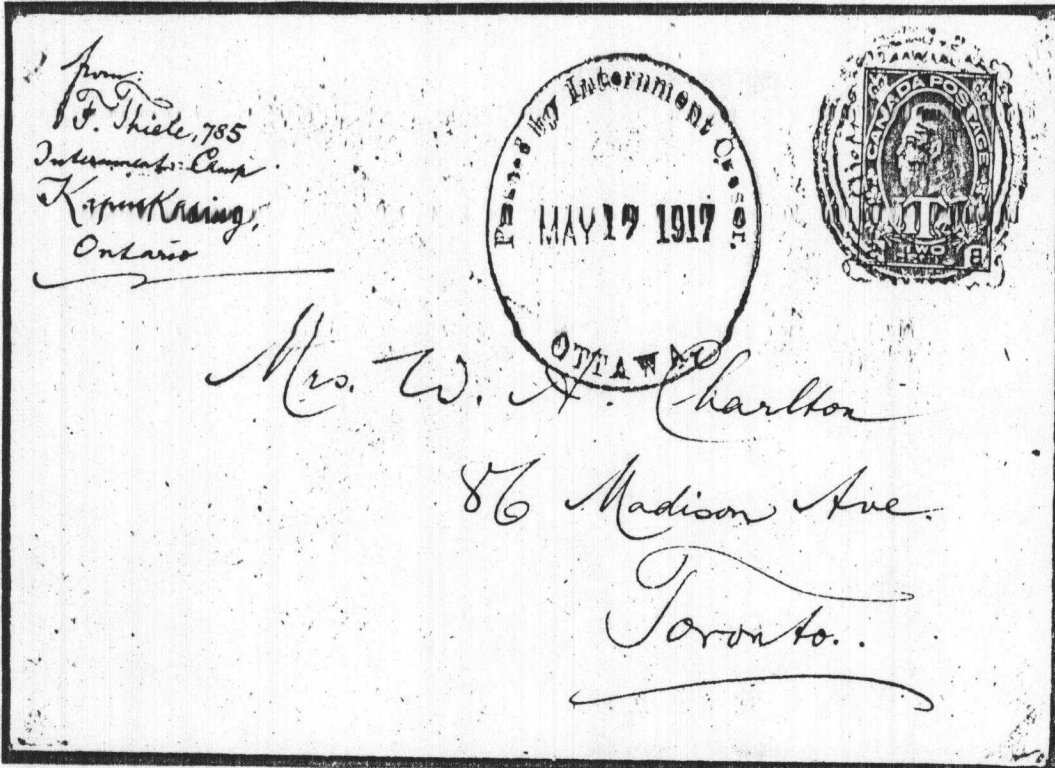 from:
F. Thiele, 785
Internment: Camp
Kapuskasing,
Ontario
Passed by Internment Censor.
MAY 17 1917
OTTAWA
CANADA POSTAGE
Mrs. W. A. Charlton
86 Madison Ave.
Toronto.